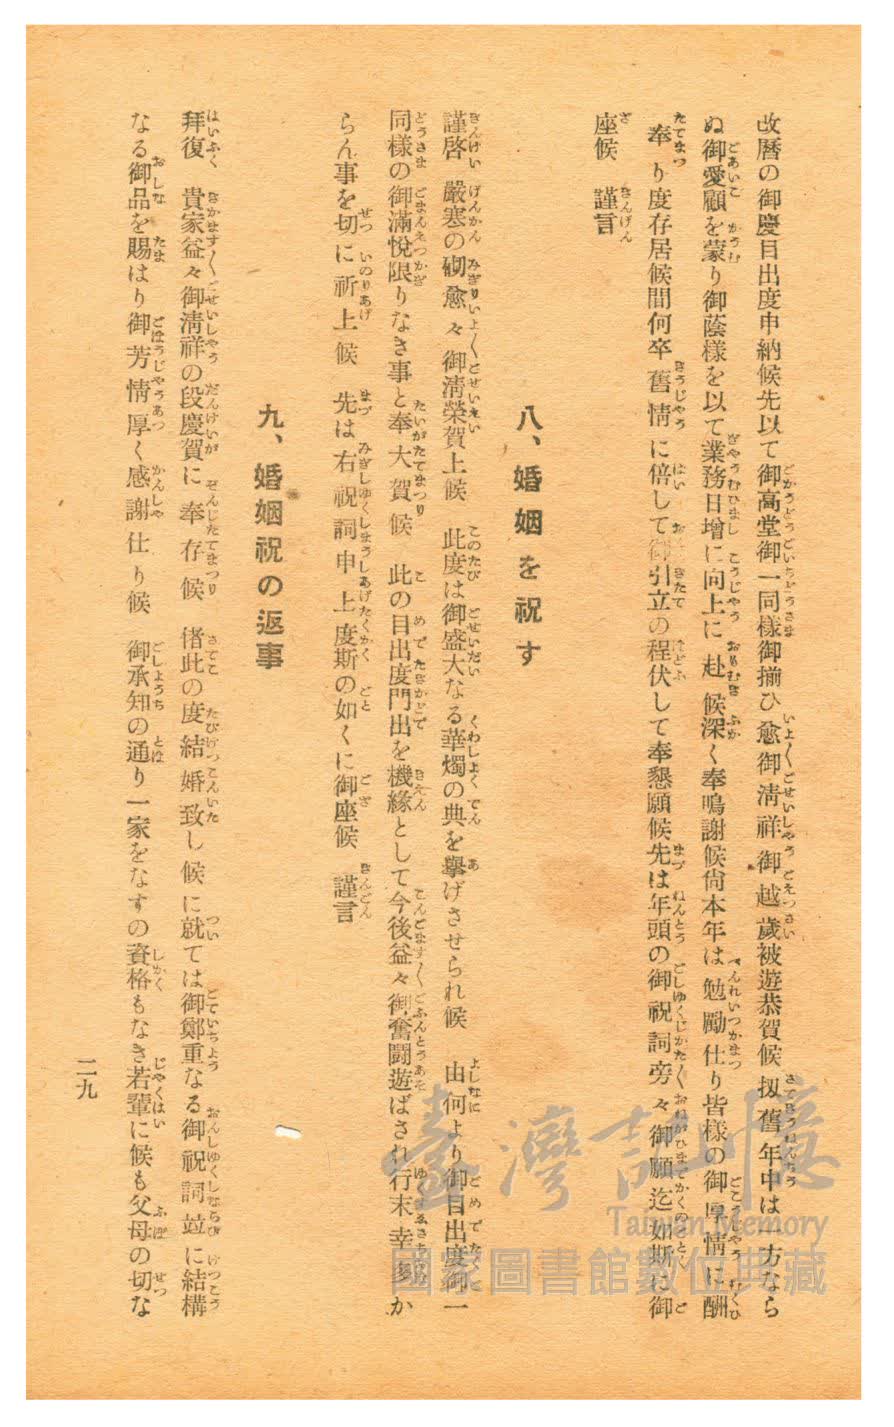 改曆の御慶目出度申納候先以て御高堂御一同樣御揃ひ愈御淸祥御越歲被遊恭賀候扨舊年中は一方なら
ぬ御愛顧を蒙り御蔭樣を以て業務日增に向上に赴候深く奉鳴謝候尙本年は勉勵仕り皆樣の御厚情に酬
奉り度存居候間何卒舊情に倍して御引立の程伏して奉懇願候先は年頭の御祝詞旁々御願迄如斯に御
座候 謹言
八、婚姻を祝す
謹啓 嚴寒の砌愈々御淸榮賀上候 此度は御盛大なる華燭の典を擧げさせられ候 由何より御目出度御一
同樣の御滿悅限りなき事と奉大賀候 此の目出度門出を機緣として今後益々御奮鬪遊ばされ行末幸多か
らん事を切に祈上候 先は右祝詞申上度斯の如くに御座候 謹言
九、婚姻祝の返事
拜復 貴家益々御淸祥の段慶賀に奉存候 偖此の度結婚致し候に就ては御鄭重なる御祝詞竝に結構
なる御品を賜はり御芳情厚く感謝仕り候 御承知の通り一家をなすの資格もなき若輩に候も父母の切な
二九
臺灣記憶
Taiwan Memory
國家圖書館數位典藏